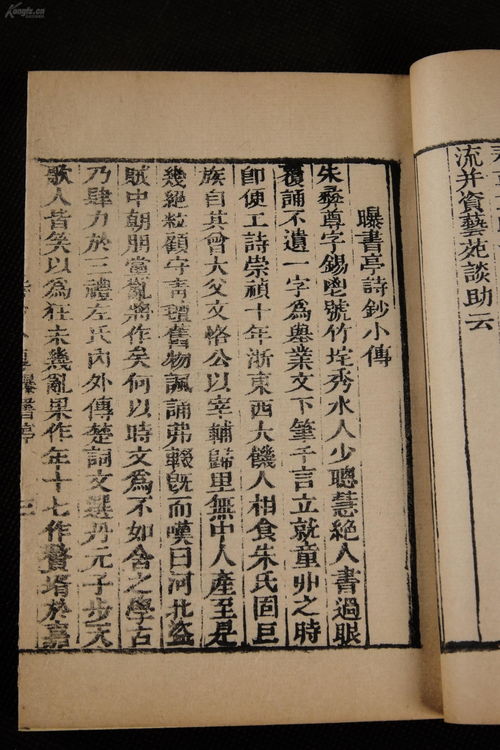 流并資藝苑談助云
曝書亭詩鈔小傳
朱彝尊字錫鬯號竹垞秀水人少聰慧絕人書過眼
覆誦不遺一字為舉業文下筆千言立就童丱之時
即便工詩崇禎十年浙東西大饑人相食朱氏固巨
族自其曾大父文恪公以宰輔歸里無中人產至是
幾絕粒顧守青氊舊物諷誦弗輟旣而嘆曰河北盜
賊中朝朋黨亂將作矣何以時文為不如舍之學古
乃肆力於三禮左氏內外傳楚詞文選丹元子步天
歌人皆笑以為狂未幾亂果作年十七作贅壻於嘉
Kongfz.cn